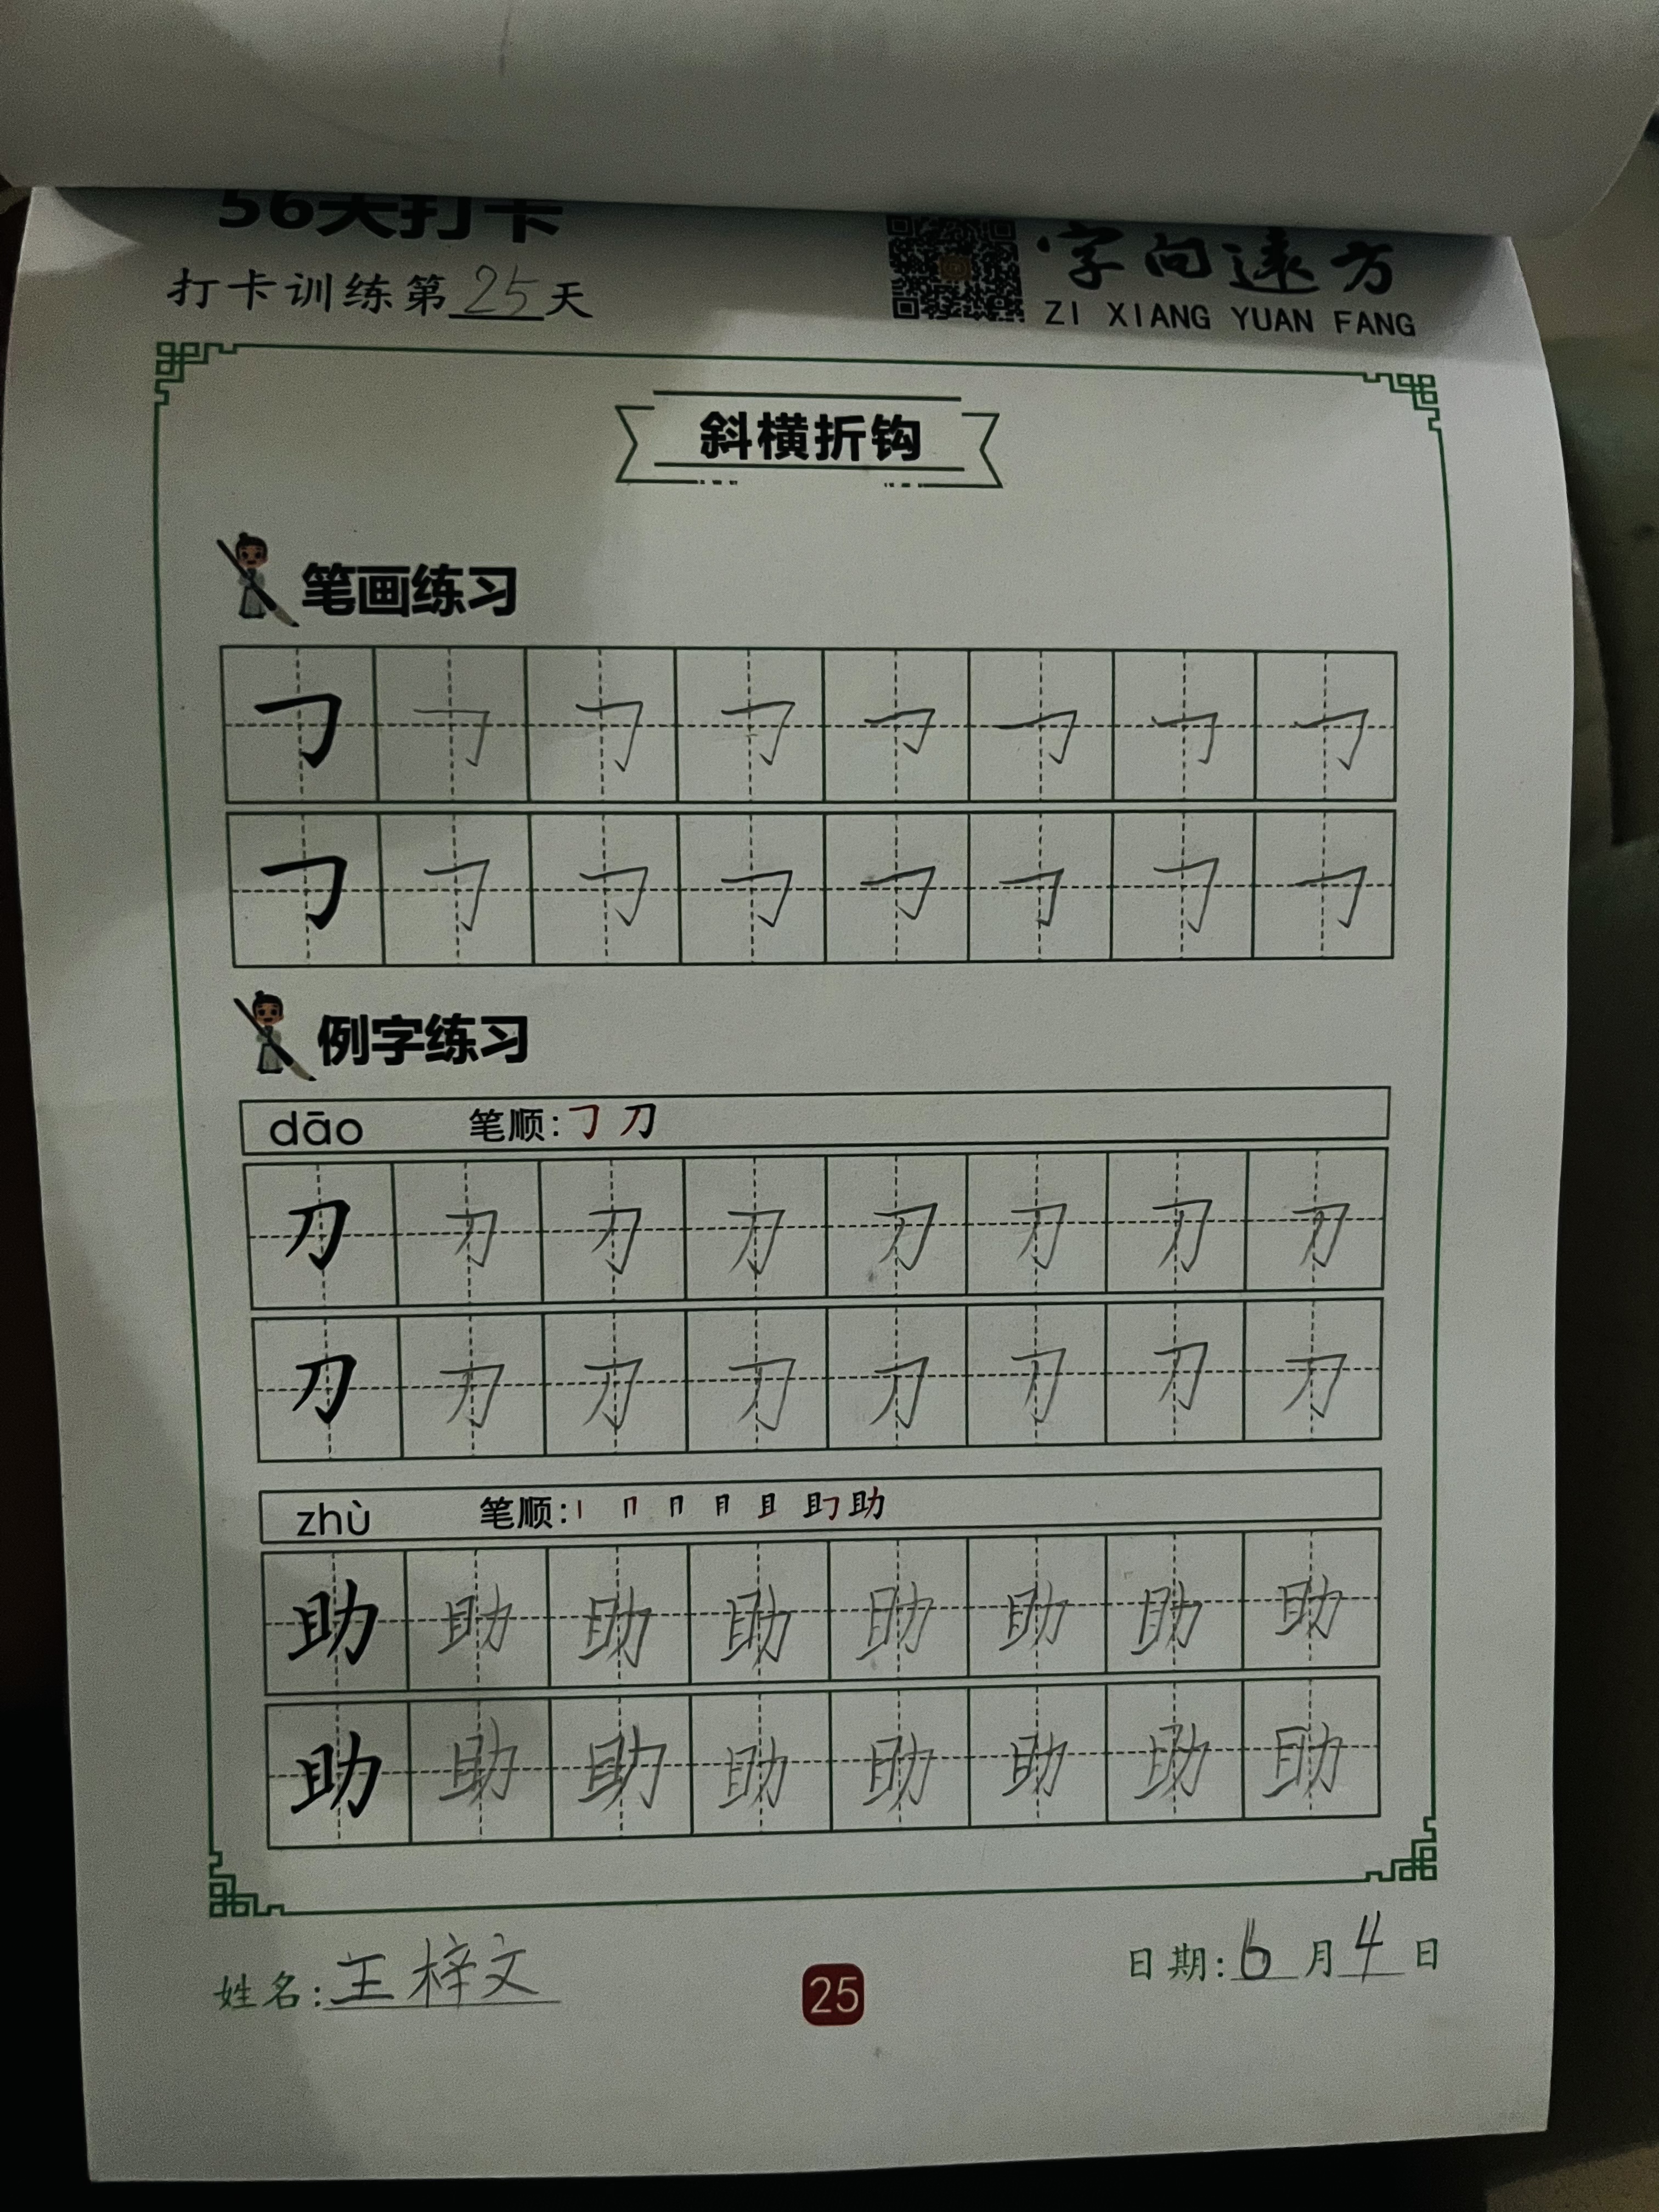 56天打卡
打卡训练第25天
字向远方
ZI XIANG YUAN FANG
斜横折钩
笔画练习
𠃌 𠃌 𠃌 𠃌 𠃌 𠃌 𠃌 𠃌
𠃌 𠃌 𠃌 𠃌 𠃌 𠃌 𠃌 𠃌
例字练习
dāo 笔顺:𠃌 刀
刀 刀 刀 刀 刀 刀 刀 刀
刀 刀 刀 刀 刀 刀 刀 刀
zhù 笔顺:丨 冂 冃 月 且 助
助 助 助 助 助 助 助 助
助 助 助 助 助 助 助 助
姓名:王梓文
25
日期:6月4日